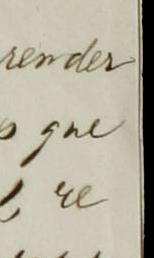 render
s que
l, re